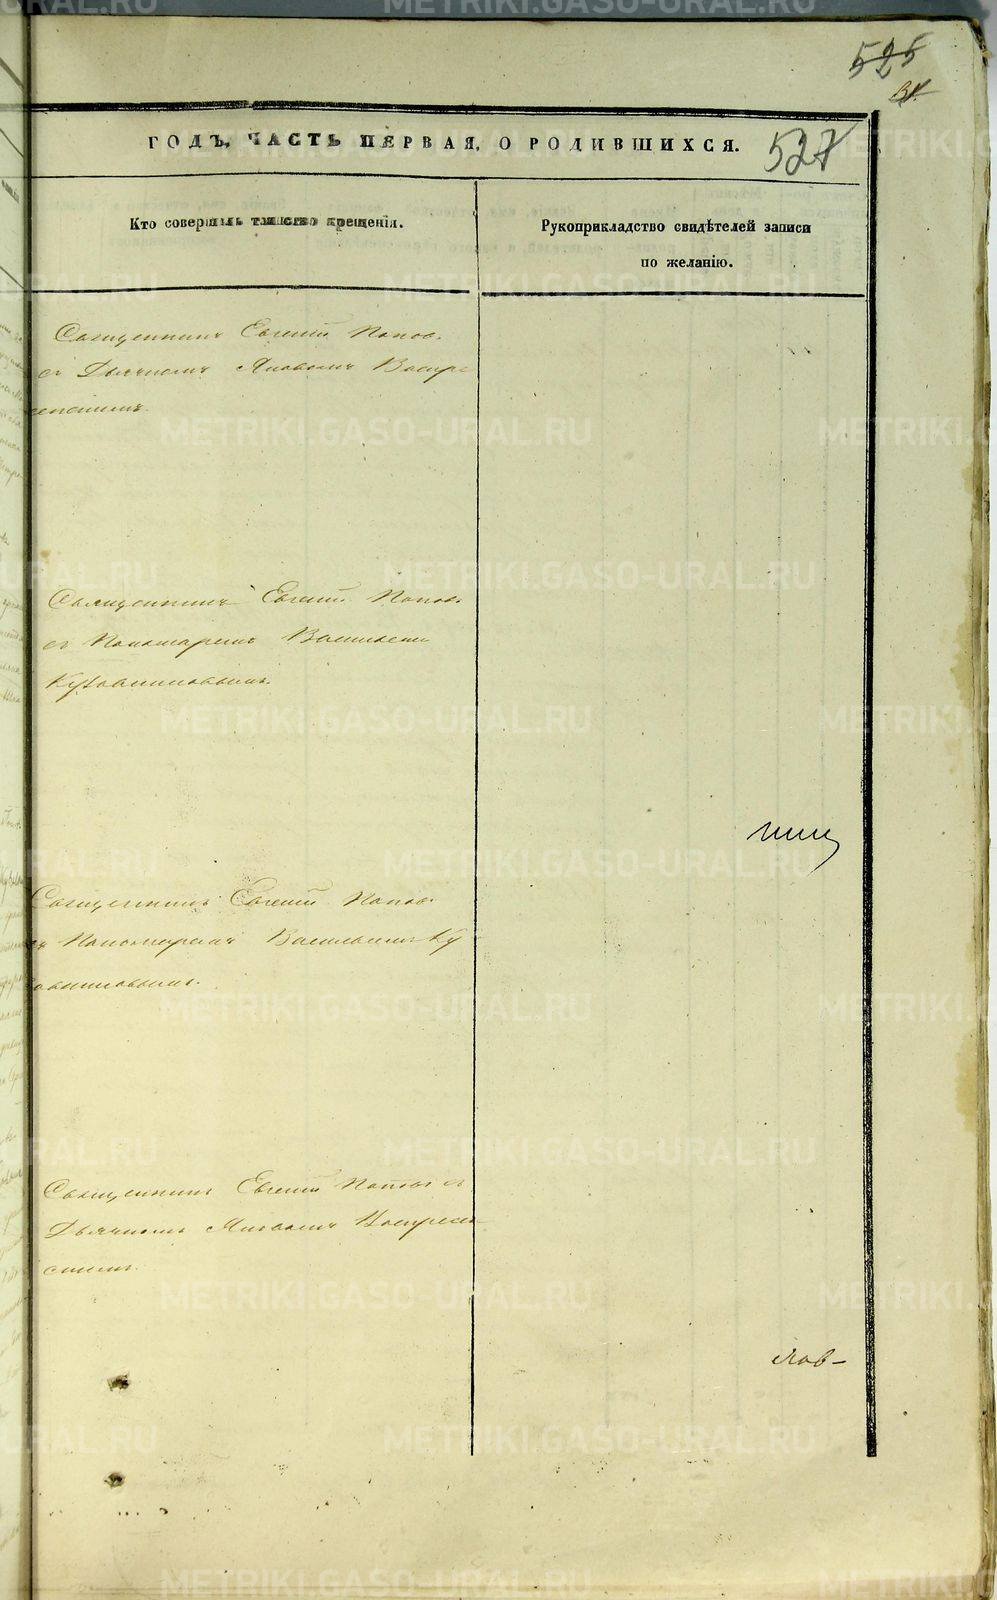 525
527
ГОДЪ, ЧАСТЬ ПЕРВАЯ, О РОДИВШИХСЯ.
Кто совершалъ таинство крещенія.
Рукоприкладство свидѣтелей записи
по желанію.
Священникъ Евгеній Поповъ
съ Дьячкомъ Яковомъ Воскре
сенскимъ.
Священникъ Евгеній Поповъ
съ Пономаремъ Василіемъ
Кузовниковымъ.
Священникъ Евгеній Поповъ
съ Пономаремъ Василіемъ Ку
зовниковымъ.
Священникъ Евгеній Поповъ съ
Дьячкомъ Яковомъ Воскресен
скимъ.
лов-
METRIKI.GASO-URAL.RU